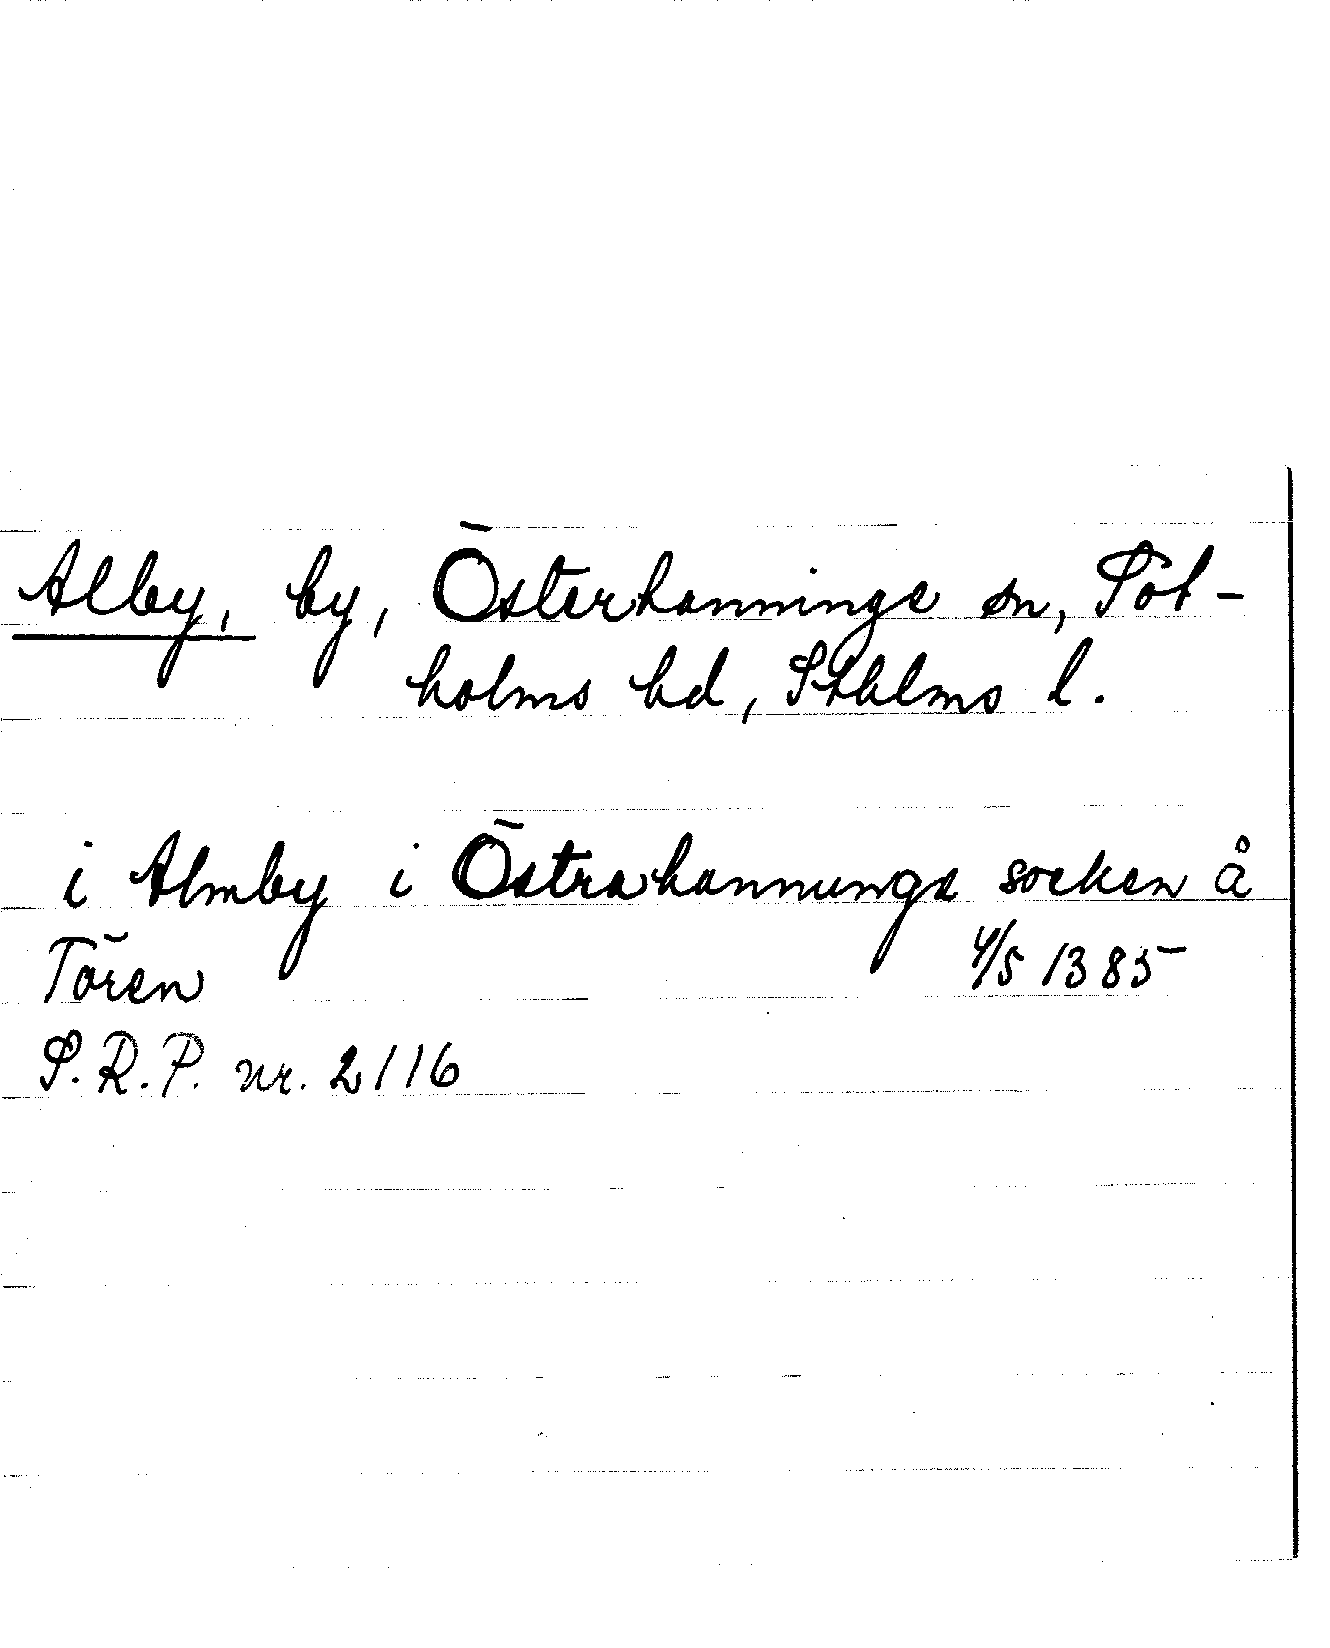 Alby, by, Österhanninge sn, Sot-
holms hd, Sthlms l.
i Almby i Östrahannunge socken å
Tören 4/5 1385
S.R.P. nr. 2116